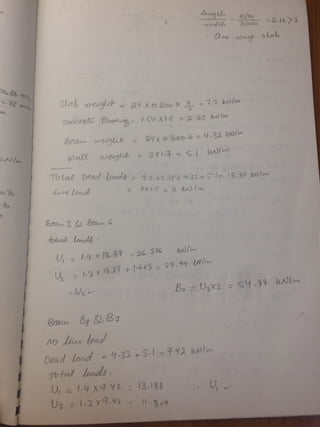 length / width = 6500 / 3000 = 2.16 > 2
∴ One way slab
Slab weight = 24 x 0.200 x 3/2 = 7.2 kN/m
Concrete flooring = 1.50 x 1.5 = 2.25 kN/m
Beam weight = 24 x 0.3 x 0.6 = 4.32 kN/m
Wall weight = 3 x 1.7 = 5.1 kN/m
Total Dead loads = 7.2 + 2.25 + 4.32 + 5.1 = 18.87 kN/m
Live load = 2 x 1.5 = 3 kN/m
Beam 1 & Beam 6
total loads :
U1 = 1.4 x 18.87 = 26.376 kN/m
U2 = 1.2 x 18.87 + 1.6 x 3 = 27.44 kN/m
∴ U2 ✓
B2 = U2 x 2 = 54.88 kN/m
Beam B8 & B7
NO live load
Dead load = 4.32 + 5.1 = 9.42 kN/m
Total loads :
U1 = 1.4 x 9.42 = 13.188 ∴ U1 ✓
U2 = 1.2 x 9.42 = 11.304